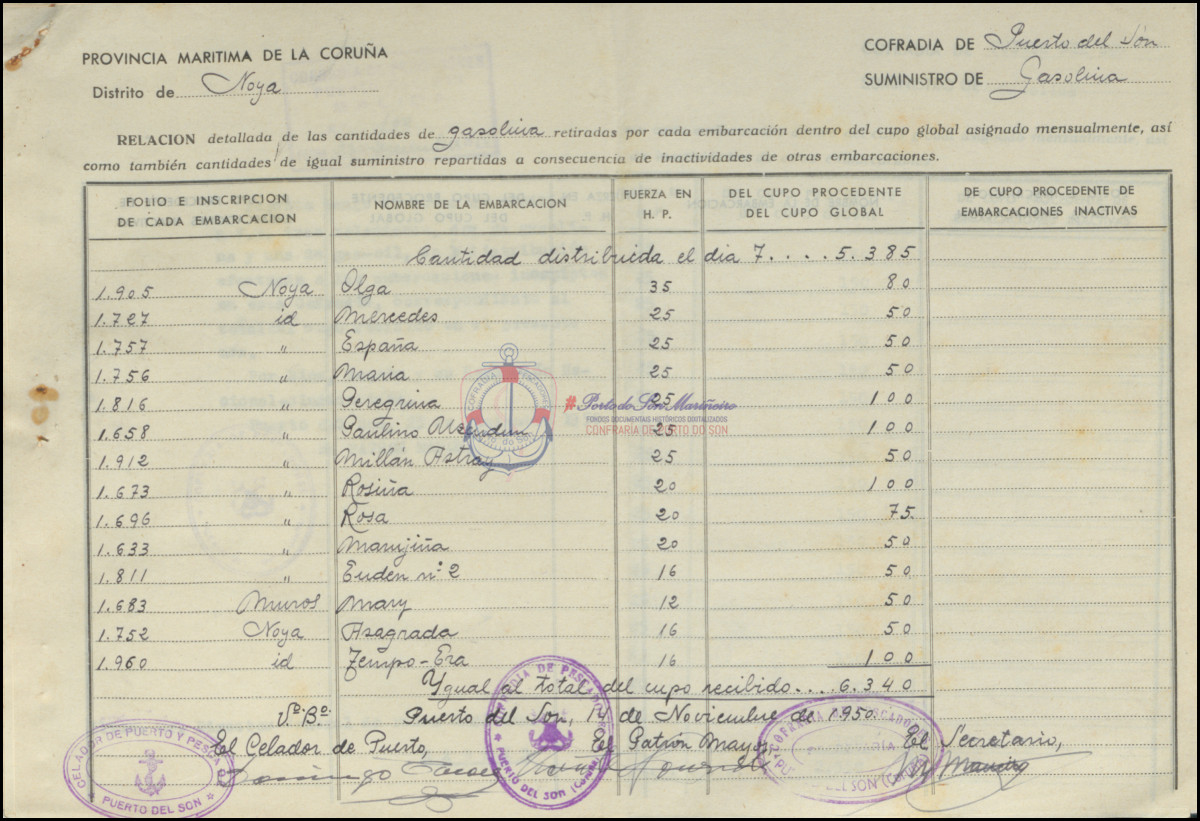 PROVINCIA MARITIMA DE LA CORUÑA
Distrito de Noya
COFRADIA DE Puerto del Són
SUMINISTRO DE Gasolina
RELACION detallada de las cantidades de gasolina retiradas por cada embarcación dentro del cupo global asignado mensualmente, así
como también cantidades de igual suministro repartidas a consecuencia de inactividades de otras embarcaciones.
FOLIO E INSCRIPCION DE CADA EMBARCACION NOMBRE DE LA EMBARCACION FUERZA EN H. P. DEL CUPO PROCEDENTE DEL CUPO GLOBAL DE CUPO PROCEDENTE DE EMBARCACIONES INACTIVAS
Cantidad distribuida el dia 7.... 5.385
1.905 Noya Olga 35 80
1.727 id Mercedes 25 50
1.757 " España 25 50
1.756 " Maria 25 50
1.816 " Peregrina 25 100
1.658 " Paulino 25 100
1.912 " Millán Astray 25 50
1.673 " Rosiña 20 100
1.696 " Rosa 20 75
1.633 " Marujiña 20 50
1.811 " Euden nº 2 16 50
1.683 Muros Mary 12 50
1.752 Noya Asagrada 16 50
1.960 id Tempo-Era 16 100
Ygual al total del cupo recibido.... 6.340
Vº Bº Puerto del Son, 14 de Noviembre de 1950.
El Celador de Puerto, El Patrón Mayor, El Secretario,
Domingo
CELADOR DE PUERTO Y PESCA
PUERTO DEL SON
COFRADIA DE PESCADORES
PUERTO DEL SON (Coruña)
COFRADIA DE PESCADORES
DEL SON (Coruña)
# Porto do Son Mariñeiro
FONDOS DOCUMENTAIS HISTÓRICOS DIXITALIZADOS
CONFRARIA DE PORTO DO SON